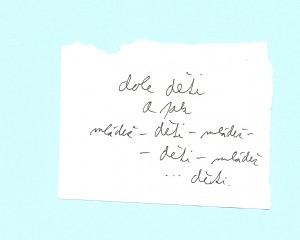 dole děti
a pak
mládež – děti – mládež –
– děti – mládež
... děti.